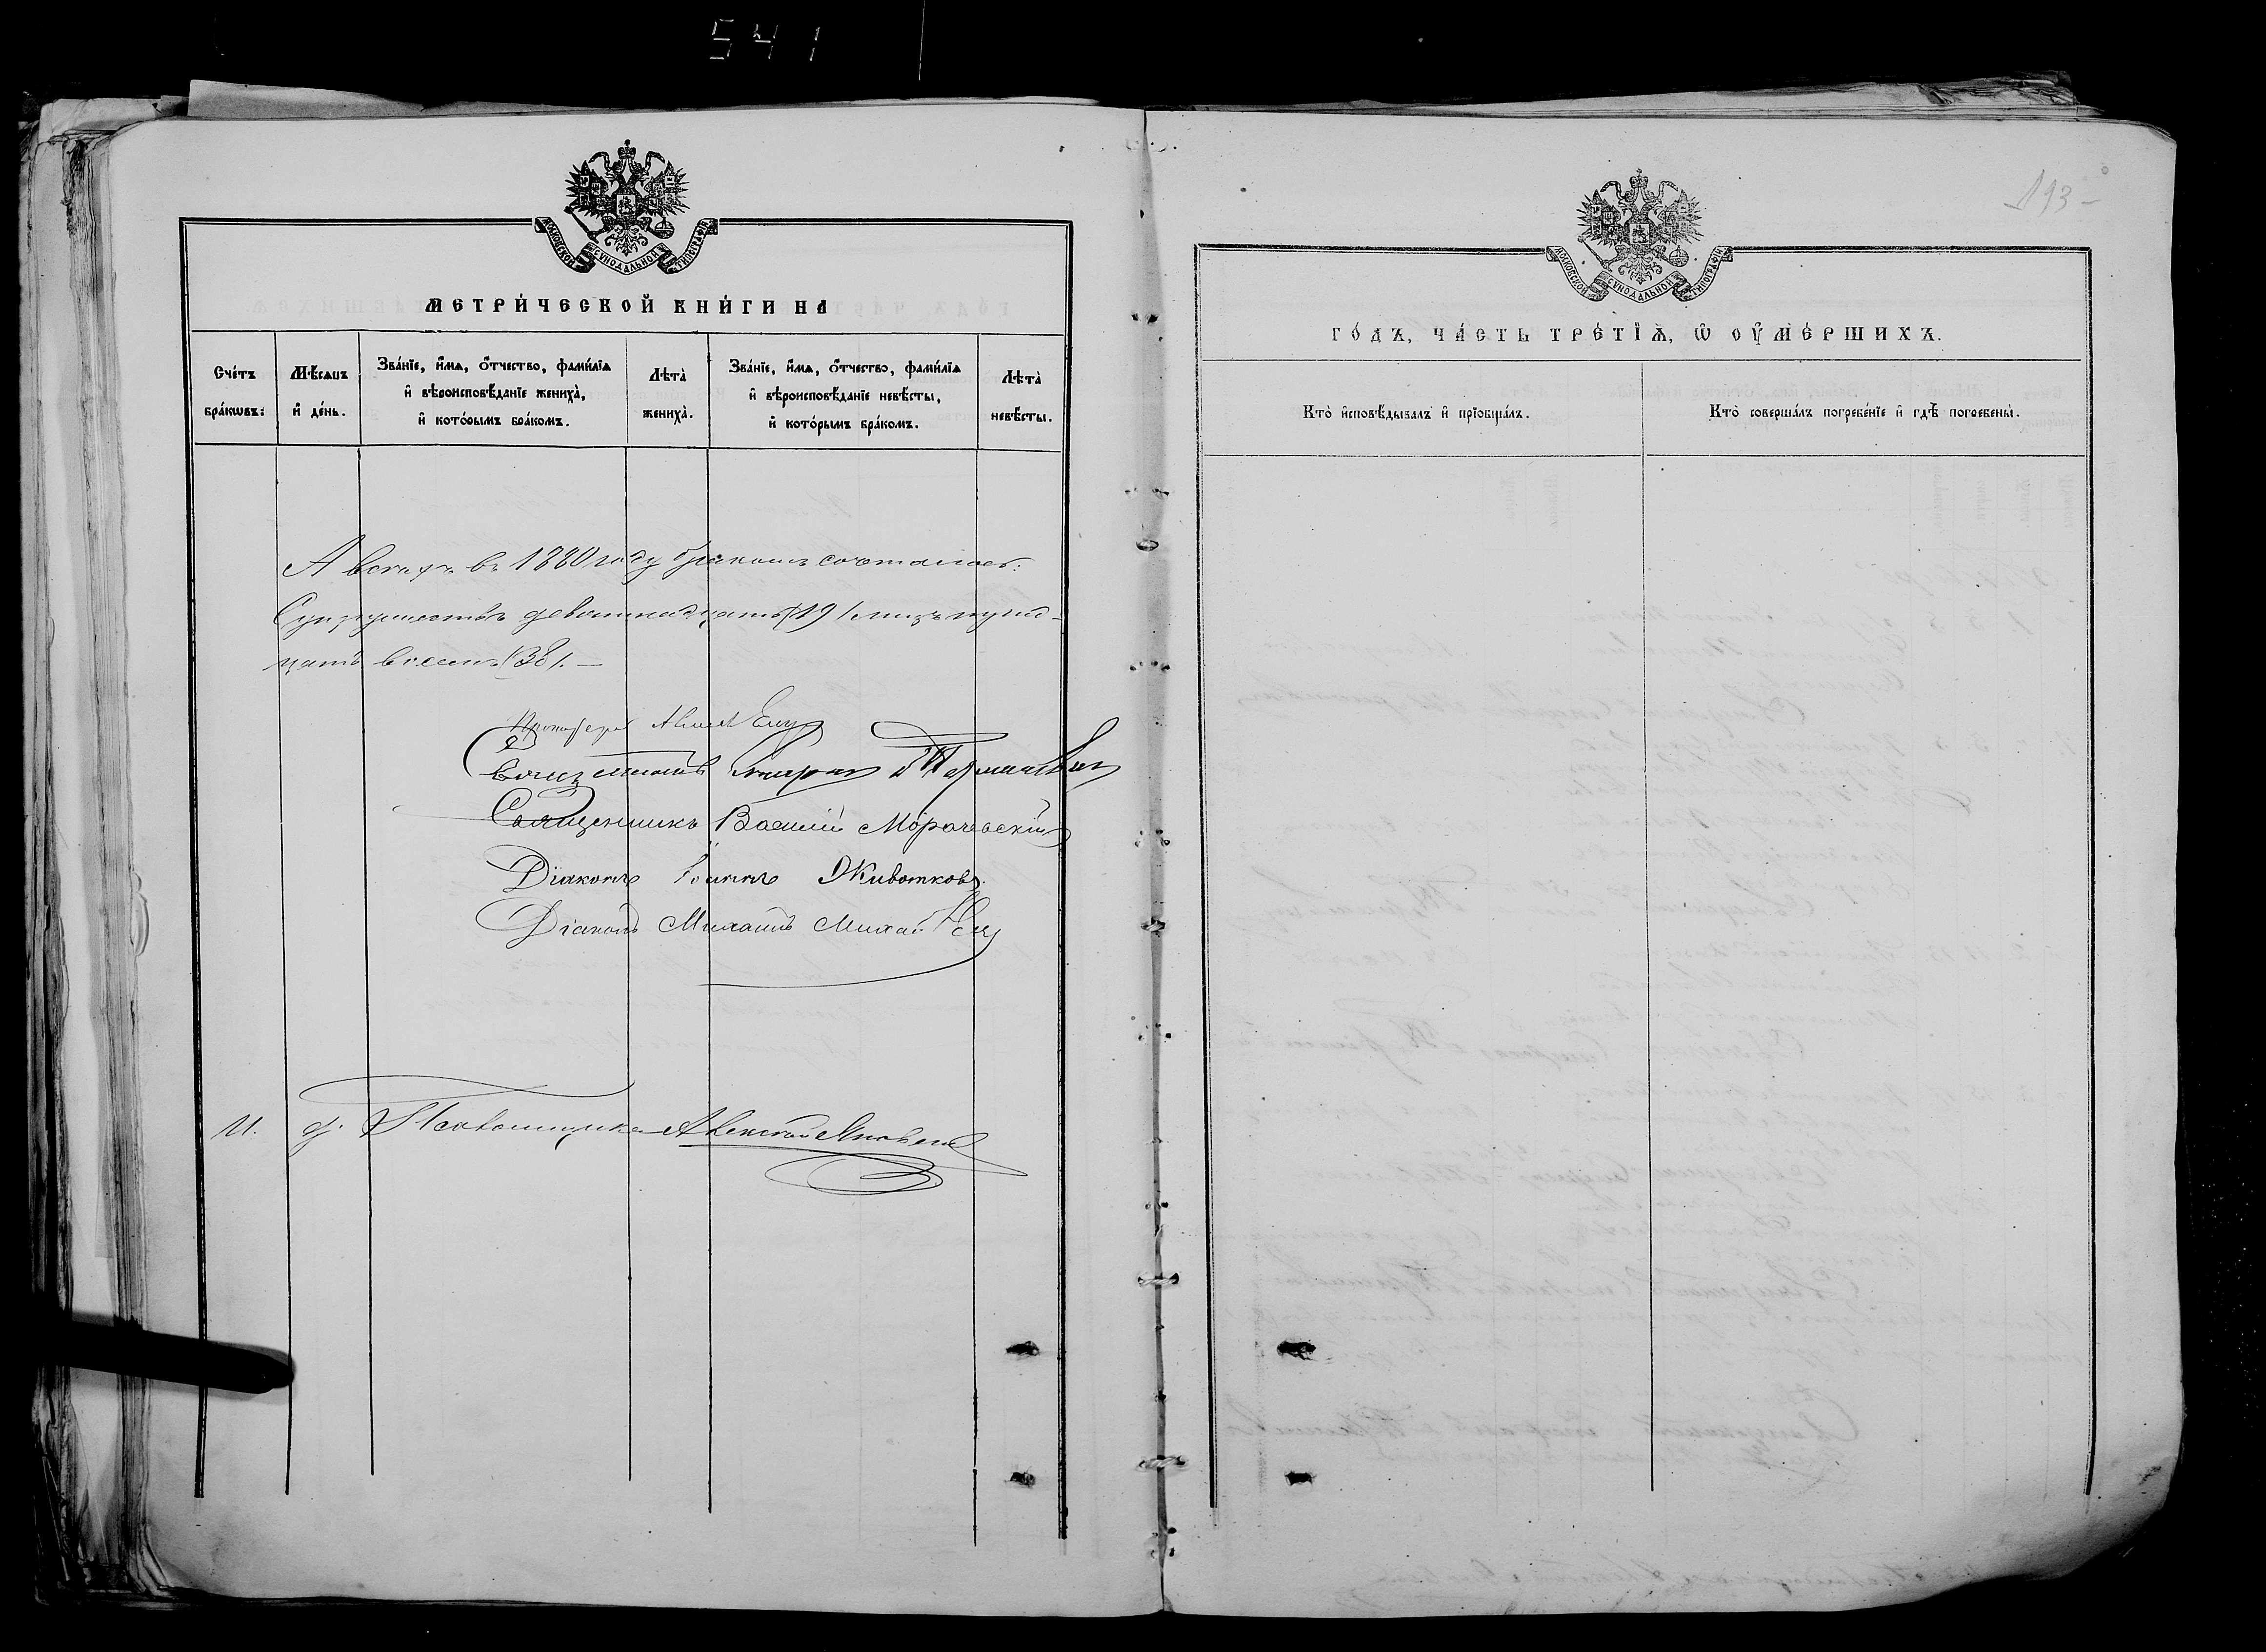 541
МОСКОВСКОЙ СѴНОДАЛЬНОЙ ТИПОГРАФІИ
МЕТРИ́ЧЕСКОЙ КНИ́ГИ НА
Сче́тъ бра́кѡвъ:
Мѣ́сѧцъ и҆ де́нь.
Зва́нїе, и҆́мѧ, ѻ҆́тчество, фами́лїѧ
и҆ вѣроисповѣ́данїе жениха̀,
и҆ кото́рымъ бра́комъ.
Лѣта̀ жениха̀.
Зва́нїе, и҆́мѧ, ѻ҆́тчество, фами́лїѧ
и҆ вѣроисповѣ́данїе невѣ́сты,
и҆ кото́рымъ бра́комъ.
Лѣта̀ невѣ́сты.
А всехъ въ 1880 году бракомъ сочеталось:
Супружествъ девятнадцать (19) лицъ трид-
цать восемь (38). —
Священникъ Василій Морачевскій
Діаконъ Іоаннъ Животковъ
Діаконъ Михаилъ
193
МОСКОВСКОЙ СѴНОДАЛЬНОЙ ТИПОГРАФІИ
ГО́ДЪ, ЧА́СТЬ ТРЕ́ТЇѦ, Ѡ҆ ОУ҆МЕ́РШИХЪ.
Кто̀ и҆сповѣ́дывалъ и҆ прїѡбща́лъ.
Кто̀ соверша́лъ погребе́нїе и҆ гдѣ̀ погребены̀.